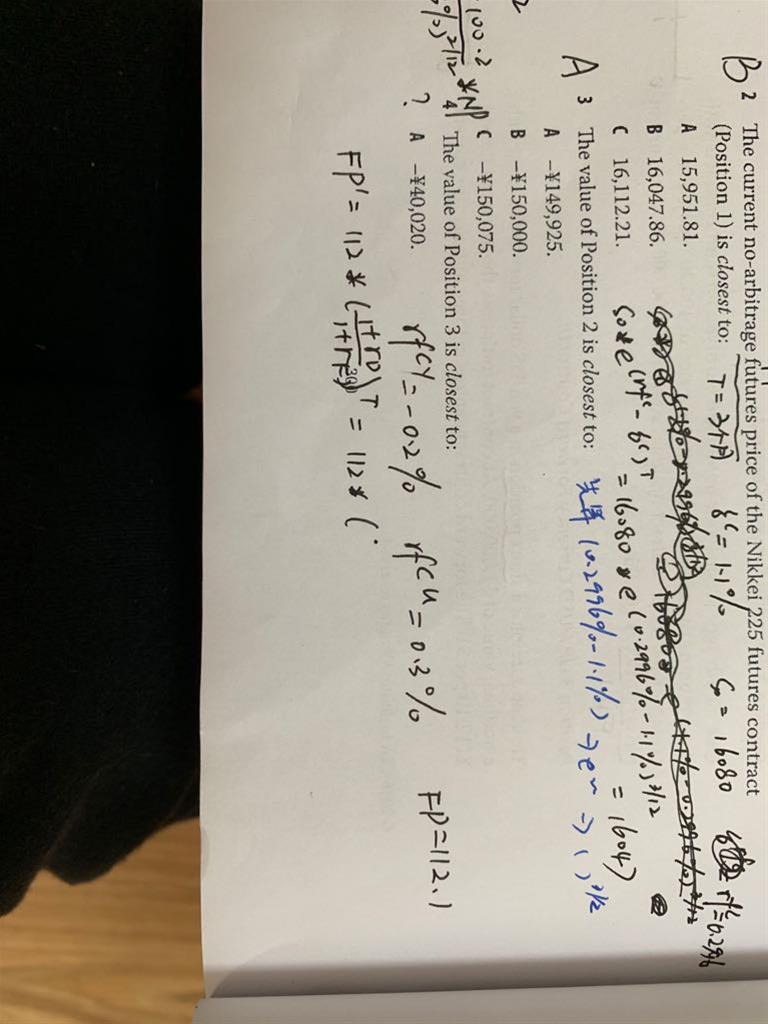 B 2 The current no-arbitrage futures price of the Nikkei 225 futures contract
(Position 1) is closest to: T=3个月 δᶜ=1.1% S₀=16080 rfᶜ=0.2996
A 15,951.81.
B 16,047.86.
C 16,112.21. S₀*e^(rfᶜ-δᶜ)T = 16080*e^(0.2996%-1.1%)3/12 = 16047
A 3 The value of Position 2 is closest to: 先算 (0.2996%-1.1%) → eˣ → ( )^3/12
A −¥149,925.
B −¥150,000.
C −¥150,075.
100.2
%)^2/12 *NP
4 The value of Position 3 is closest to:
? A −¥40,020. rfCY=-0.2% rfCU=0.3% FP=112.1
FP'=112*(1+rD/1+rF)^T=112*(